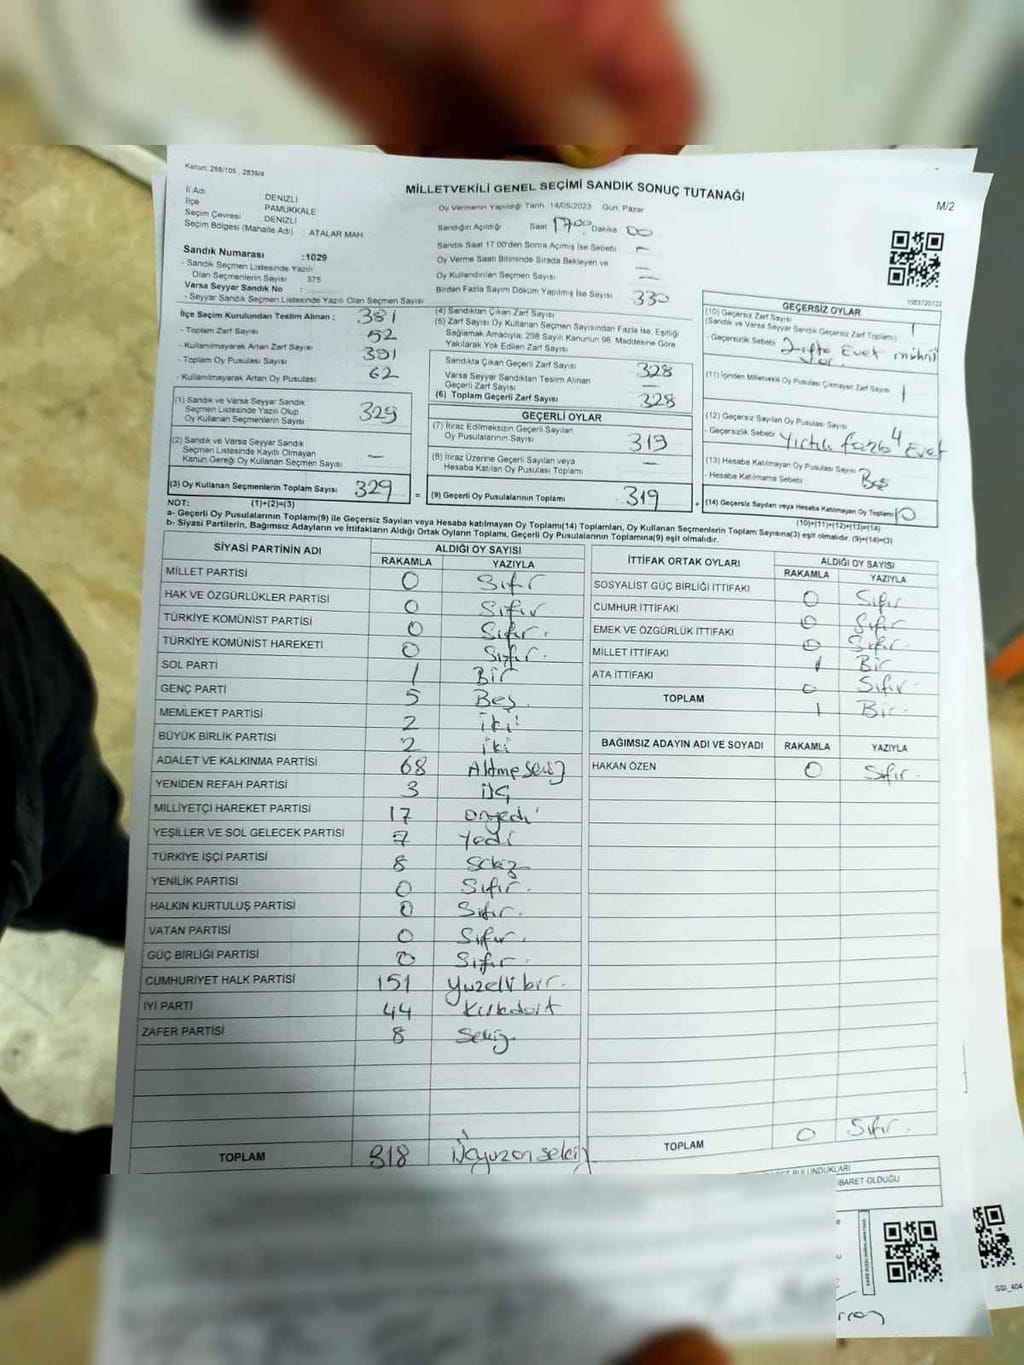 Kanun: 298/105 , 2839/4
MİLLETVEKİLİ GENEL SEÇİMİ SANDIK SONUÇ TUTANAĞI
M/2
İl Adı DENİZLİ
İlçe PAMUKKALE
Seçim Çevresi DENİZLİ
Seçim Bölgesi (Mahalle Adı) ATALAR MAH.
Oy Vermenin Yapıldığı Tarih 14/05/2023 Gün Pazar
Sandığın Açıldığı Saat 17:00 Dakika 00
Sandık Saat 17:00'den Sonra Açılmış İse Sebebi -
Oy Verme Saati Bitiminde Sırada Bekleyen ve
Oy Kullandırılan Seçmen Sayısı -
Birden Fazla Sayım Döküm Yapılmış İse Sayısı -
Sandık Numarası :1029
- Sandık Seçmen Listesinde Yazılı
Olan Seçmenlerin Sayısı 375
Varsa Seyyar Sandık No :
- Seyyar Sandık Seçmen Listesinde Yazılı Olan Seçmen Sayısı
1083720722
İlçe Seçim Kurulundan Teslim Alınan ;
- Toplam Zarf Sayısı 381
- Kullanılmayarak Artan Zarf Sayısı 52
- Toplam Oy Pusulası Sayısı 391
- Kullanılmayarak Artan Oy Pusulası 62
(1) Sandık ve Varsa Seyyar Sandık
Seçmen Listesinde Yazılı Olup
Oy Kullanan Seçmenlerin Sayısı 329
(2) Sandık ve Varsa Seyyar Sandık
Seçmen Listesinde Kayıtlı Olmayan
Kanun Gereği Oy Kullanan Seçmen Sayısı -
(3) Oy Kullanan Seçmenlerin Toplam Sayısı 329
(4) Sandıktan Çıkan Zarf Sayısı 330
(5) Zarf Sayısı Oy Kullanan Seçmen Sayısından Fazla İse, Eşitliği
Sağlamak Amacıyla, 298 Sayılı Kanunun 98. Maddesine Göre
Yakılarak Yok Edilen Zarf Sayısı
Sandıkta Çıkan Geçerli Zarf Sayısı 328
Varsa Seyyar Sandıktan Teslim Alınan
Geçerli Zarf Sayısı -
(6) Toplam Geçerli Zarf Sayısı 328
GEÇERLİ OYLAR
(7) İtiraz Edilmeksizin Geçerli Sayılan
Oy Pusulalarının Sayısı 319
(8) İtiraz Üzerine Geçerli Sayılan veya
Hesaba Katılan Oy Pusulası Toplamı -
= (9) Geçerli Oy Pusulalarının Toplamı 319
GEÇERSİZ OYLAR
(10) Geçersiz Zarf Sayısı
(Sandık ve Varsa Seyyar Sandık Geçersiz Zarf Toplamı) 1
- Geçersizlik Sebebi Evet mührü
(11) İçinden Milletvekili Oy Pusulası Çıkmayan Zarf Sayısı 1
(12) Geçersiz Sayılan Oy Pusulası Sayısı 4
- Geçersizlik Sebebi Yırtık fazla Evet
(13) Hesaba Katılmayan Oy Pusulası Sayısı
- Hesaba Katılmama Sebebi Boş
+ (14) Geçersiz Sayılan veya Hesaba Katılmayan Oy Toplamı 10
NOT: (1)+(2)=(3) (10)+(11)+(12)+(13)=(14)
a- Geçerli Oy Pusulalarının Toplamı(9) ile Geçersiz Sayılan veya Hesaba katılmayan Oy Toplamı(14) Toplamları, Oy Kullanan Seçmenlerin Toplam Sayısına(3) eşit olmalıdır. (9)+(14)=(3)
b- Siyasi Partilerin, Bağımsız Adayların ve İttifakların Aldığı Ortak Oyların Toplamı, Geçerli Oy Pusulalarının Toplamına(9) eşit olmalıdır.
SİYASİ PARTİNİN ADI ALDIĞI OY SAYISI
RAKAMLA YAZIYLA
MİLLET PARTİSİ 0 Sıfır
HAK VE ÖZGÜRLÜKLER PARTİSİ 0 Sıfır
TÜRKİYE KOMÜNİST PARTİSİ 0 Sıfır.
TÜRKİYE KOMÜNİST HAREKETİ 0 Sıfır.
SOL PARTİ 1 Bir
GENÇ PARTİ 5 Beş
MEMLEKET PARTİSİ 2 iki
BÜYÜK BİRLİK PARTİSİ 2 iki
ADALET VE KALKINMA PARTİSİ 68 Altmışsekiz
YENİDEN REFAH PARTİSİ 3 üç
MİLLİYETÇİ HAREKET PARTİSİ 17 onyedi
YEŞİLLER VE SOL GELECEK PARTİSİ 7 Yedi
TÜRKİYE İŞÇİ PARTİSİ 8 Sekiz
YENİLİK PARTİSİ 0 Sıfır.
HALKIN KURTULUŞ PARTİSİ 0 Sıfır.
VATAN PARTİSİ 0 Sıfır.
GÜÇ BİRLİĞİ PARTİSİ 0 Sıfır.
CUMHURİYET HALK PARTİSİ 151 yüzelli bir.
İYİ PARTİ 44 Kırkdört
ZAFER PARTİSİ 8 Sekiz
TOPLAM 318 Üçyüzonsekiz
İTTİFAK ORTAK OYLARI ALDIĞI OY SAYISI
RAKAMLA YAZIYLA
SOSYALİST GÜÇ BİRLİĞİ İTTİFAKI 0 Sıfır
CUMHUR İTTİFAKI 0 Sıfır
EMEK VE ÖZGÜRLÜK İTTİFAKI 0 Sıfır.
MİLLET İTTİFAKI 1 Bir
ATA İTTİFAKI 0 Sıfır.
TOPLAM 1 Bir.
BAĞIMSIZ ADAYIN ADI VE SOYADI RAKAMLA YAZIYLA
HAKAN ÖZEN 0 Sıfır.
TOPLAM 0 Sıfır.
BULUNDUKLARI
İBARET OLDUĞU
SSI_404